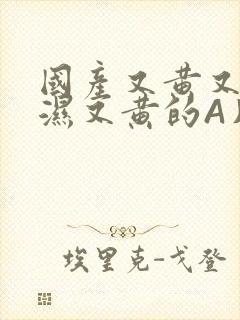 國產又黄又
濕又黄的A
埃里克-戈登